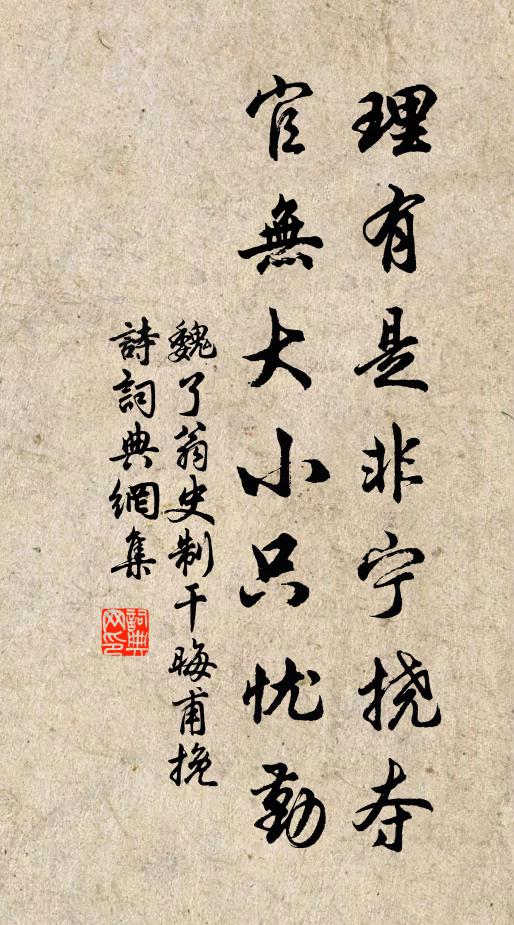 理有是非宁挠夺
官無大小只忧勤
魏了翁史制干晦甫挽
詩詞典網集
詞典网印